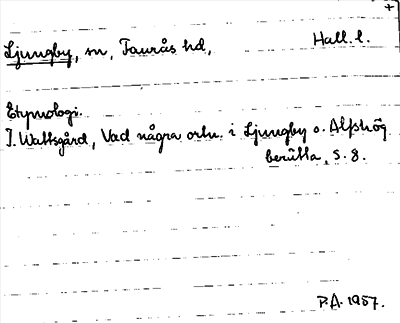 +
Ljungby, sn, Faurås hd, Hall. l.
Etymologi.
J. Wattsgård, Vad några ortn. i Ljungby o. Alfshög
berätta, S. 8.
P.A. 1957.